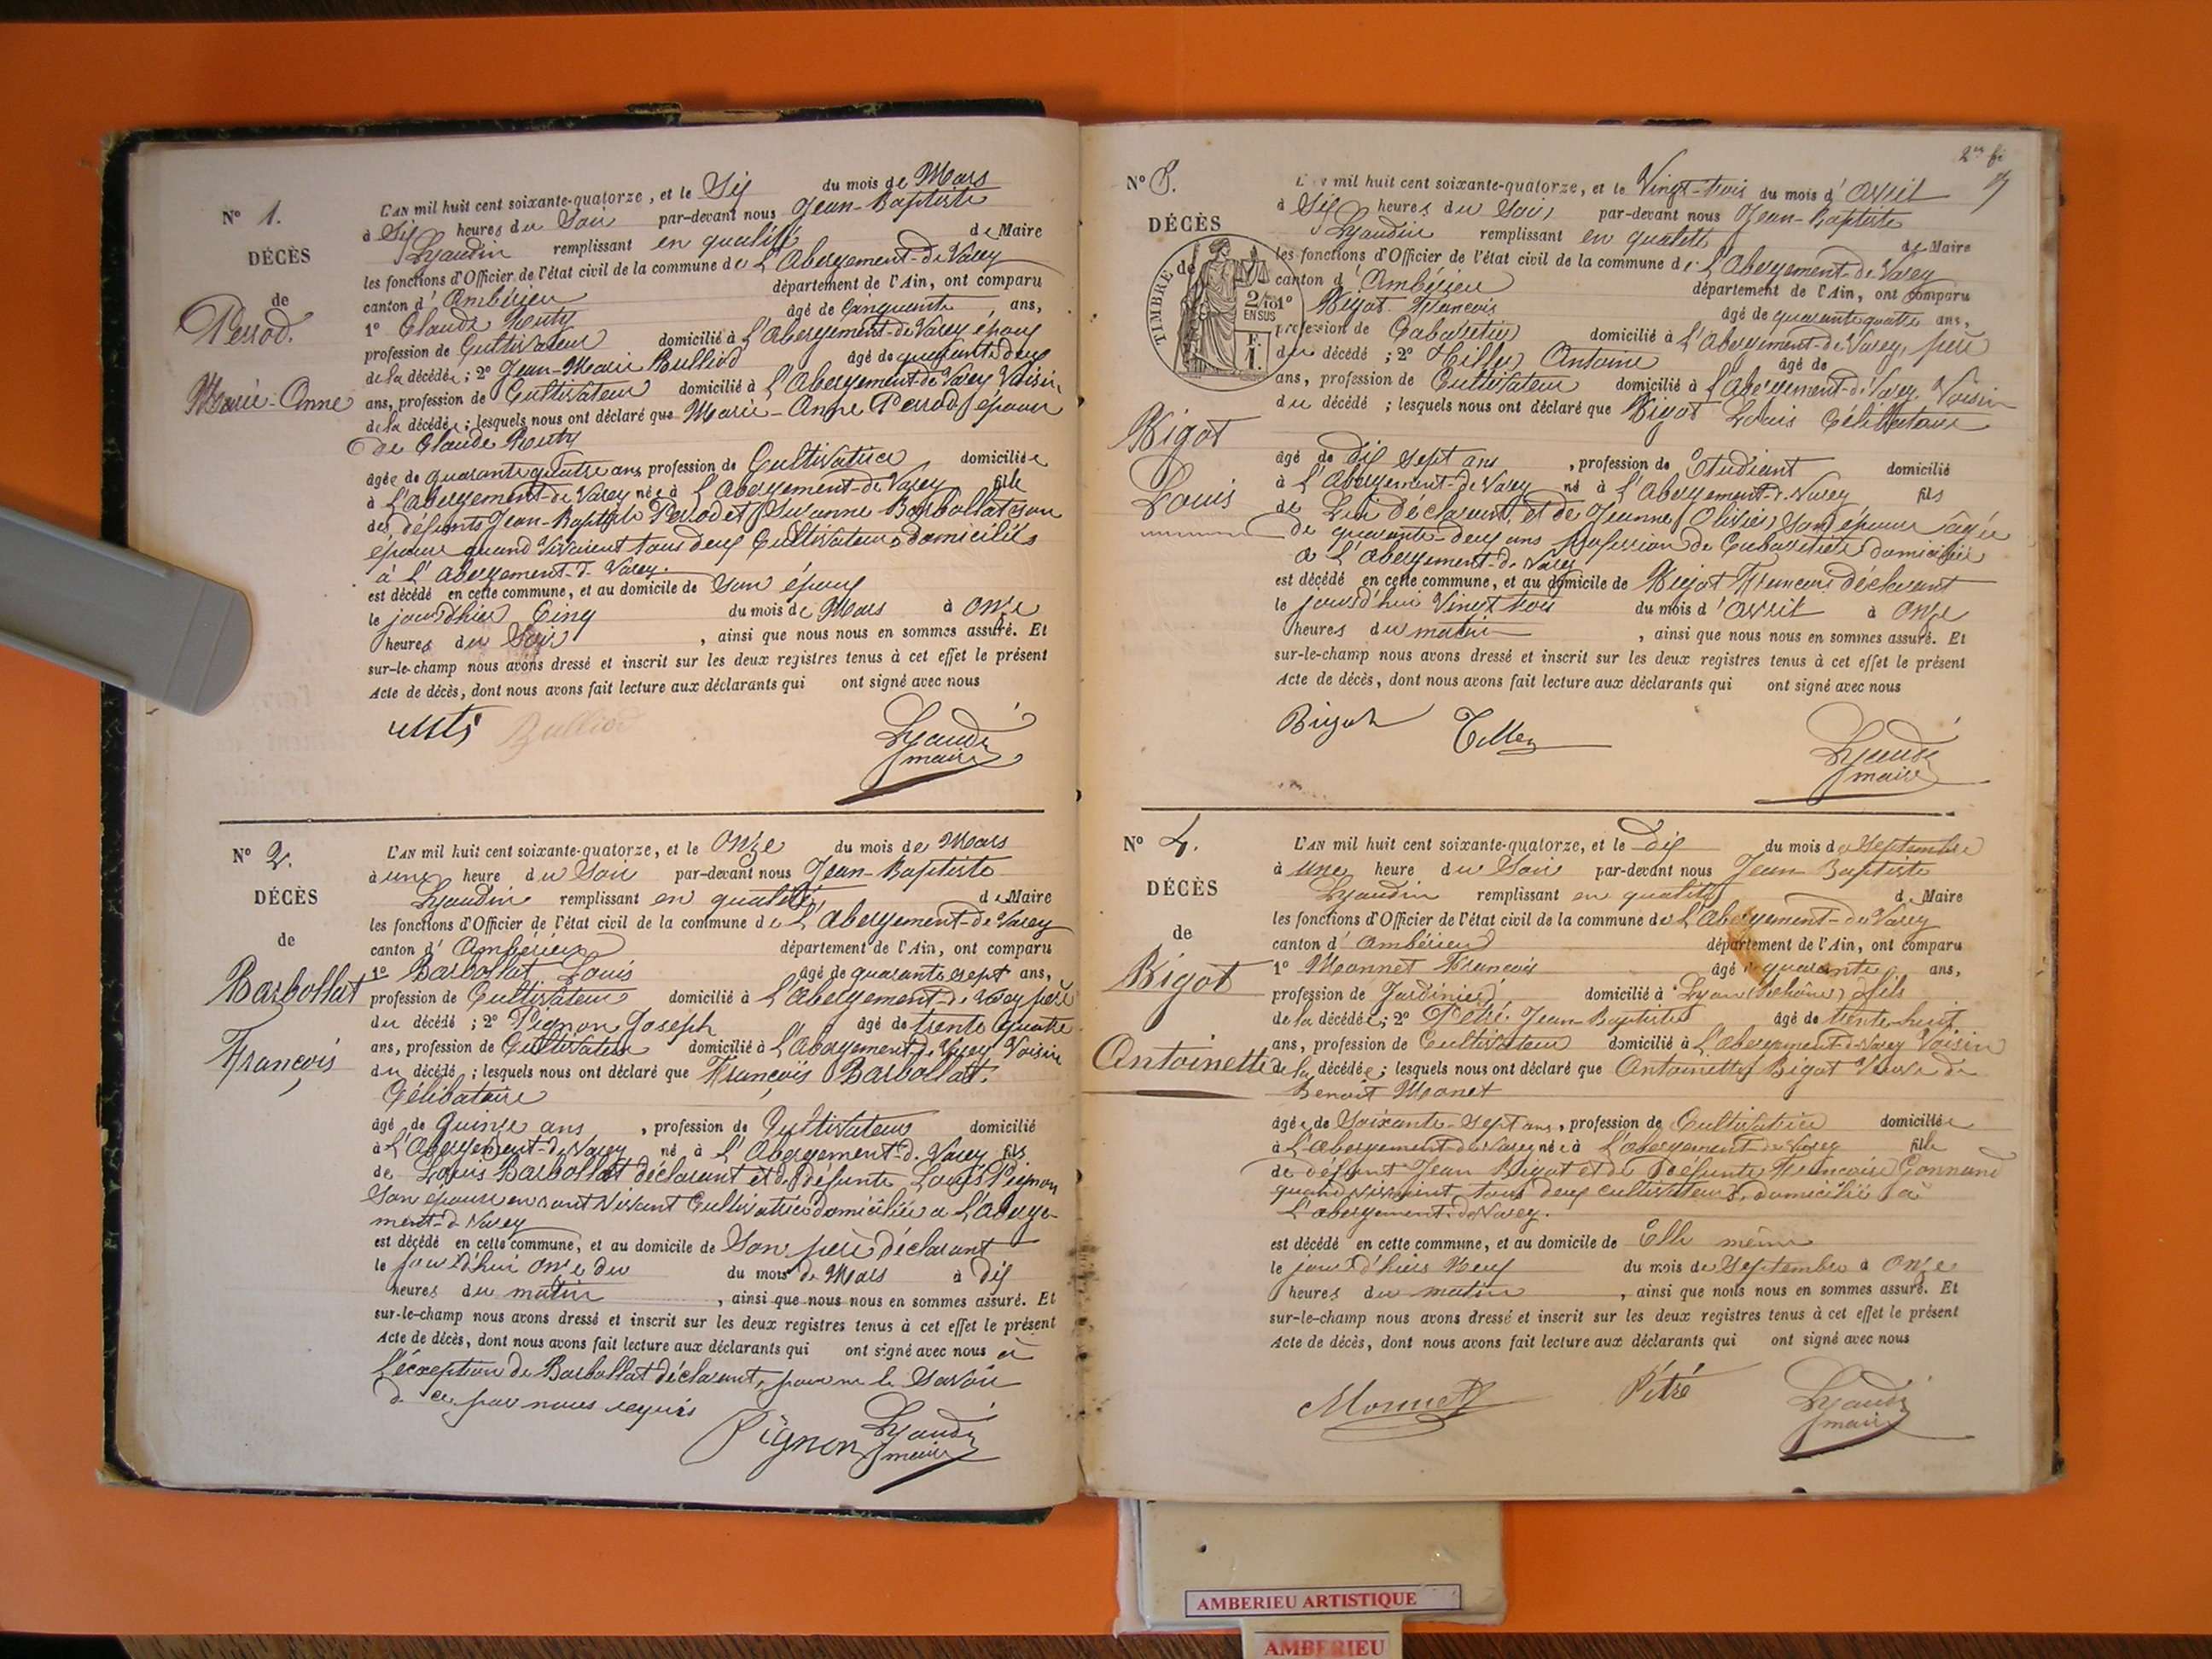 N° 1.
DÉCÈS
de
Perrod.
Marie-Anne
L'AN mil huit cent soixante-quatorze, et le Six du mois de Mars
à Six heures du Soir par-devant nous Jean-Baptiste
Lyaudin remplissant en qualité de Maire
les fonctions d'Officier de l'état civil de la commune de L'Abergement-de-Varey
canton d'Ambérieu département de l'Ain, ont comparu
1° Claude âgé de Cinquante ans,
profession de Cultivateur domicilié à L'Abergement-de-Varey époux
de la décédée ; 2° Jean-Marie Bulliod âgé de quarante deux
ans, profession de Cultivateur domicilié à L'Abergement-de-Varey Voisin
de la décédée ; lesquels nous ont déclaré que Marie-Anne Perrod épouse
de Claude
âgée de quarante quatre ans profession de Cultivatrice domiciliée
à L'Abergement-de-Varey née à L'Abergement-de-Varey fille
des défunts Jean-Baptiste Perrod et Suzanne Barbollat son
épouse quand vivaient tous deux Cultivateurs domiciliés
à L'abergement-d-Varey.
est décédé en cette commune, et au domicile de son époux
le jour d'hier Cinq du mois de Mars à onze
heures du Soir , ainsi que nous nous en sommes assuré. Et
sur-le-champ nous avons dressé et inscrit sur les deux registres tenus à cet effet le présent
Acte de décès, dont nous avons fait lecture aux déclarants qui ont signé avec nous
Bulliod Lyaudin
maire
N° 2.
DÉCÈS
de
Barbollat
François
L'AN mil huit cent soixante-quatorze, et le Onze du mois de Mars
à une heure du Soir par-devant nous Jean-Baptiste
Lyaudin remplissant en qualité de Maire
les fonctions d'Officier de l'état civil de la commune de L'Abergement-de-Varey
canton d'Ambérieu département de l'Ain, ont comparu
1° Barbollat Louis âgé de quarante sept ans,
profession de Cultivateur domicilié à L'Abergement-de-Varey père
du décédé ; 2° Pignon Joseph âgé de trente quatre
ans, profession de Cultivateur domicilié à L'Abergement-de-Varey Voisin
du décédé ; lesquels nous ont déclaré que François Barbollat.
Célibataire
âgé de quinze ans , profession de Cultivateur domicilié
à L'Abergement-de-Varey né à L'Abergement-d-Varey fils
de Louis Barbollat déclarant et de défunte Pignon
Son épouse en vivant Cultivatrice domiciliée à L'Aberge-
ment-d-Varey
est décédé en cette commune, et au domicile de Son père déclarant
le jourd'hui onze du du mois de Mars à dix
heures du matin , ainsi que nous nous en sommes assuré. Et
sur-le-champ nous avons dressé et inscrit sur les deux registres tenus à cet effet le présent
Acte de décès, dont nous avons fait lecture aux déclarants qui ont signé avec nous à
L'éxception de Barbollat déclarant, pour ne le Savoir
de ce par nous requis
Pignon Lyaudin
maire
N° 3.
DÉCÈS
de
TIMBRE
2/10
EN SUS
F.
1.
Bigot
Louis
L'an mil huit cent soixante-quatorze, et le Vingt-trois du mois d'Avril
à Six heures du Soir par-devant nous Jean-Baptiste
Lyaudin remplissant en qualité de Maire
les fonctions d'Officier de l'état civil de la commune de L'Abergement-de-Varey
canton d'Ambérieu département de l'Ain, ont comparu
1° Bigot François âgé de quarante quatre ans,
profession de Cabaretier domicilié à L'Abergement-de-Varey, père
du décédé ; 2° Antoine âgé de
ans, profession de Cultivateur domicilié à L'Abergement-de-Varey Voisin
du décédé ; lesquels nous ont déclaré que Bigot Louis Célibataire
âgé de dix sept ans , profession de Etudiant domicilié
à L'Abergement-de-Varey né à L'Abergement-d-Varey fils
de Lui déclarant, et de Jeanne Olivier, son épouse âgée
de quarante-deux ans profession de Cabaretière domiciliée
à L'abergement-de-Varey
est décédé en cette commune, et au domicile de Bigot François déclarant
le jourd'hui Vingt trois du mois d'Avril à Onze
heures du matin , ainsi que nous nous en sommes assuré. Et
sur-le-champ nous avons dressé et inscrit sur les deux registres tenus à cet effet le présent
Acte de décès, dont nous avons fait lecture aux déclarants qui ont signé avec nous
Bigot Lyaudin
maire
N° 4.
DÉCÈS
de
Bigot
Antoinette
L'AN mil huit cent soixante-quatorze, et le Dix du mois de Septembre
à une heure du Soir par-devant nous Jean Baptiste
Lyaudin remplissant en qualité de Maire
les fonctions d'Officier de l'état civil de la commune de L'Abergement-de-Varey
canton d'Ambérieu département de l'Ain, ont comparu
1° Monnet François âgé de quarante ans,
profession de Jardinier domicilié à Lyon (Rhône) fils
de la décédée ; 2° Pétré Jean-Baptiste âgé de trente-huit
ans, profession de Cultivateur domicilié à L'abergement-d-Varey Voisin
de la décédée ; lesquels nous ont déclaré que Antoinette Bigot Veuve de
Benoît Monet
âgée de Soixante-sept ans, profession de Cultivatrice domiciliée
à L'abergement-de-Varey née à L'abergement-de-Varey fille
de défunt Jean Bigot et de défunte Françoise Gonnand
quand vivaient tous deux cultivateurs, domiciliés à
L'abergement-de-Varey.
est décédé en cette commune, et au domicile de Elle même
le jour d'hier Neuf du mois de Septembre à Onze
heures du matin , ainsi que nous nous en sommes assuré. Et
sur-le-champ nous avons dressé et inscrit sur les deux registres tenus à cet effet le présent
Acte de décès, dont nous avons fait lecture aux déclarants qui ont signé avec nous
Monnet Pétré Lyaudin
maire
AMBERIEU ARTISTIQUE
AMBERIEU